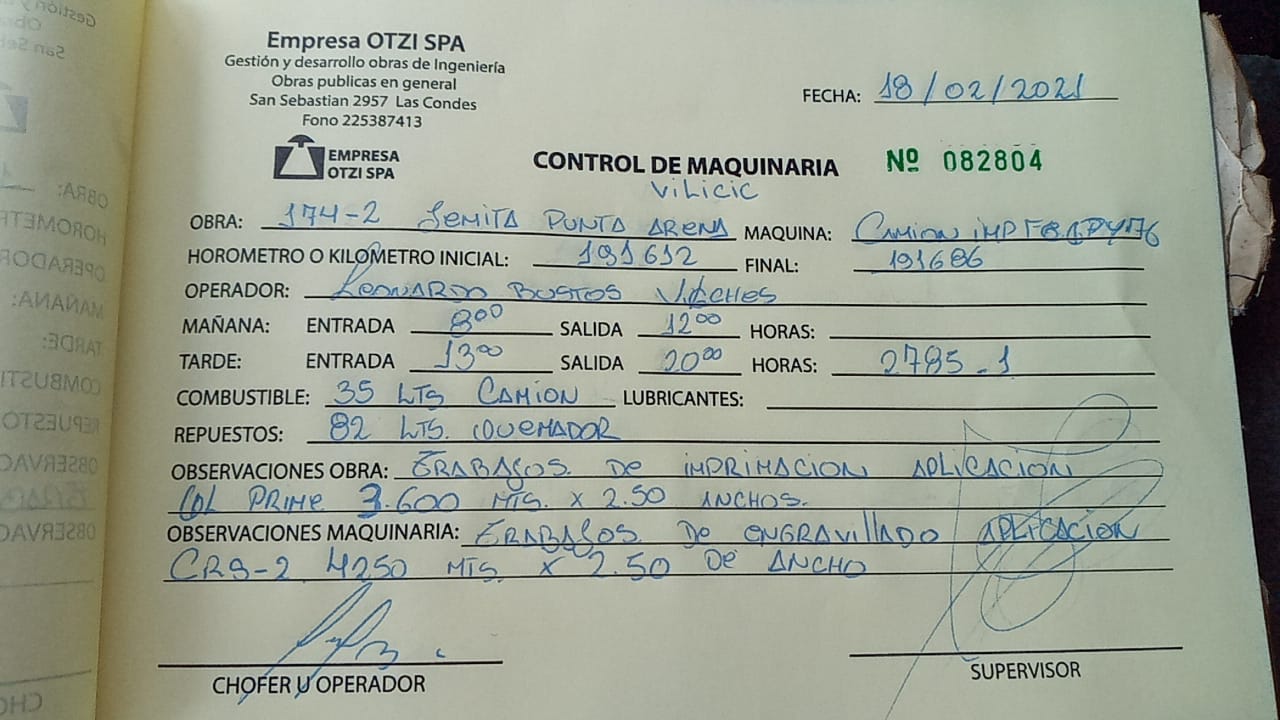 Empresa OTZI SPA
Gestión y desarrollo obras de Ingeniería
Obras publicas en general
San Sebastian 2957 Las Condes
Fono 225387413
EMPRESA
OTZI SPA
FECHA: 18/02/2021
CONTROL DE MAQUINARIA Nº 082804
ViLicic
OBRA: 174-2 SEMITA PUNTA ARENA MAQUINA: CAMION IMP
HOROMETRO O KILOMETRO INICIAL: 191612 FINAL: 191686
OPERADOR: LEONARDO BUSTOS VILCHES
MAÑANA: ENTRADA 800 SALIDA 1200 HORAS:
TARDE: ENTRADA 1300 SALIDA 2000 HORAS: 2785.1
COMBUSTIBLE: 35 LTS CAMION LUBRICANTES:
REPUESTOS: 82 LTS. QUEMADOR
OBSERVACIONES OBRA: TRABAJOS. DE IMPRIMACION APLICACION
COL PRIME 3.600 MTS. X 2.50 ANCHOS.
OBSERVACIONES MAQUINARIA: TRABAJOS. DE ENGRAVILLADO APLICACION
CRS-2 4250 MTS. X 2.50 DE ANCHO
CHOFER U OPERADOR
SUPERVISOR